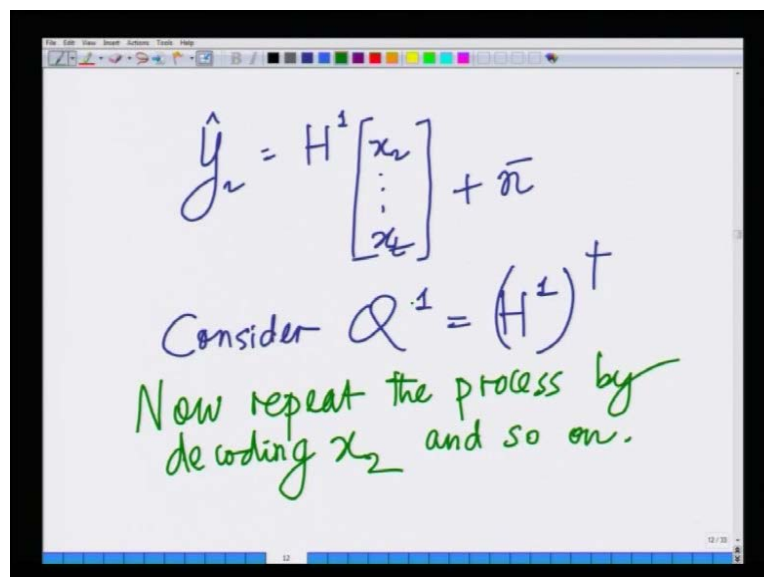 File Edit View Insert Actions Tools Help
B I
ŷ₂ = H¹ [x₂ ⋮ x_t] + n̄
Consider Q¹ = (H¹)†
Now repeat the process by
decoding x₂ and so on.
12/33
12